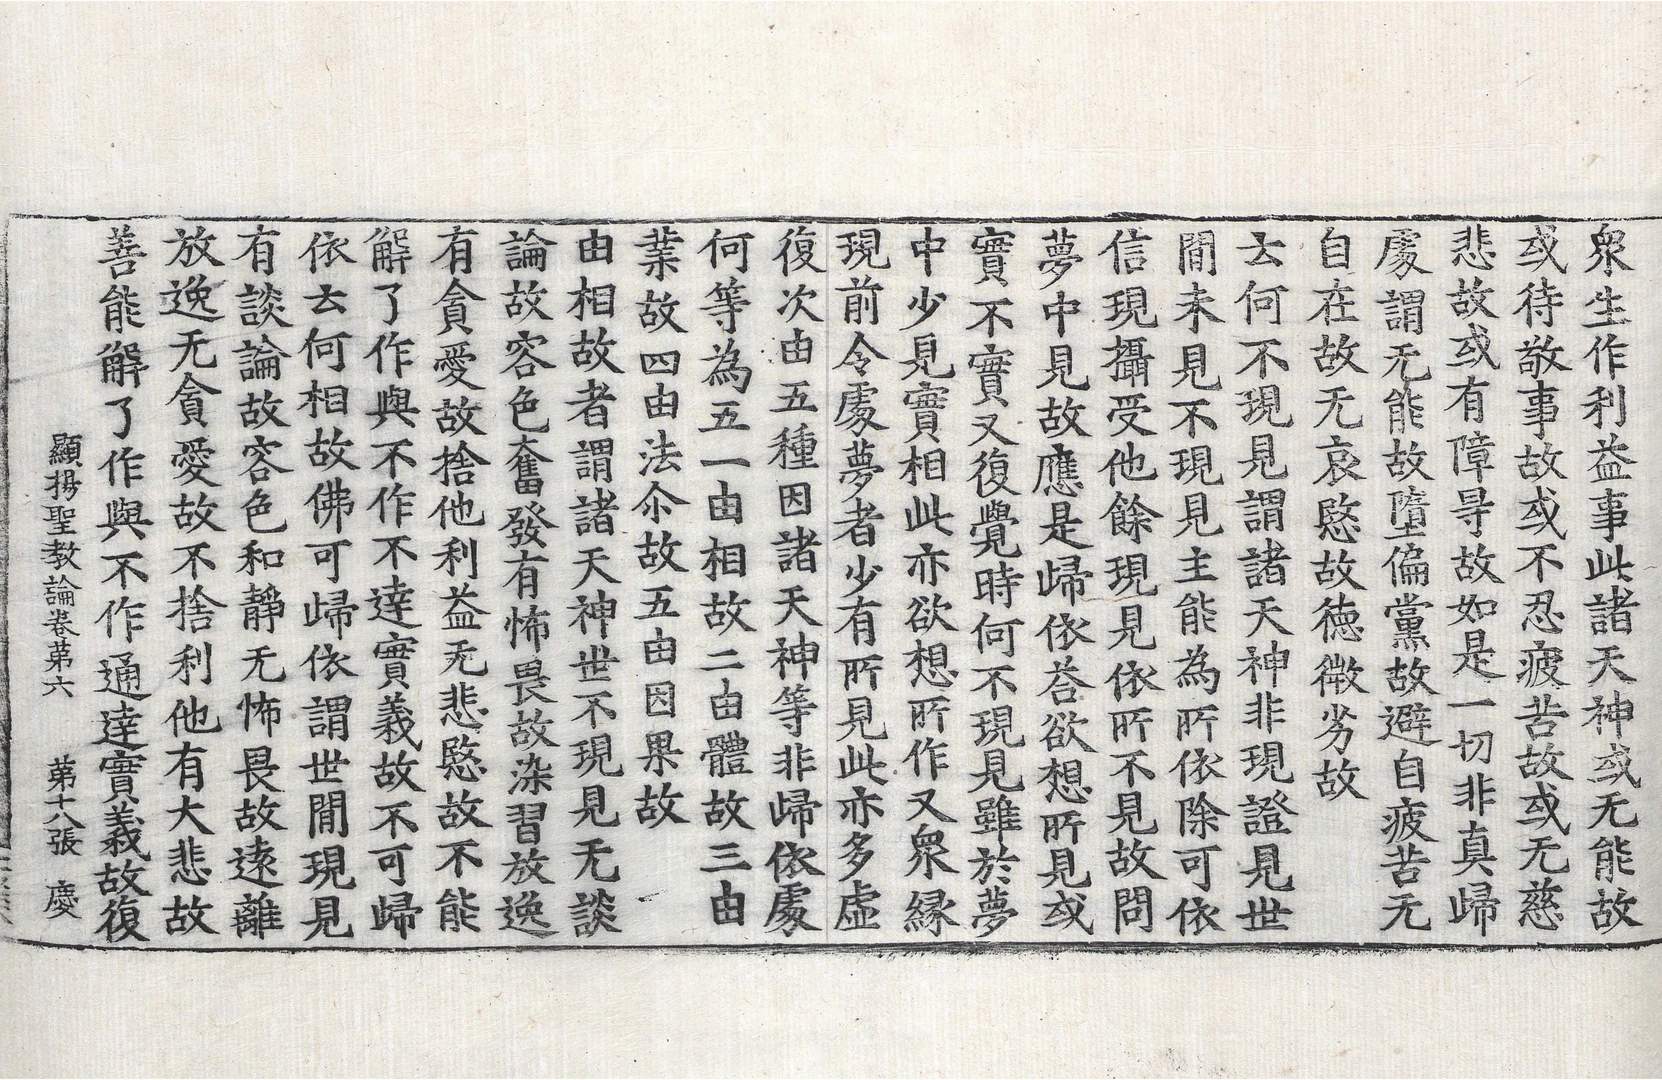 衆生作利益事此諸天神或无能故
或待敬事故或不忍疲苦故或无慈
悲故或有障㝵故如是一切非真歸
處謂无能故墮偏黨故避自疲苦无
自在故无哀愍故德微劣故
云何不現見謂諸天神非現證見世
間未見不現見主能為所依除可依
信現攝受他餘現見依所不見故問
夢中見故應是歸依荅欲想所見或
實不實又復覺時何不現見雖於夢
中少見實相此亦欲想所作又衆縁
現前令處夢者少有所見此亦多虛
復次由五種因諸天神等非歸依處
何等為五一由相故二由體故三由
業故四由法尒故五由因果故
由相故者謂諸天神世不現見无談
論故容色奮發有怖畏故染習放逸
有貪愛故捨他利益无悲愍故不能
解了作與不作不達實義故不可歸
依云何相故佛可歸依謂世間現見
有談論故容色和靜无怖畏故遠離
放逸无貪愛故不捨利他有大悲故
善能解了作與不作通達實義故復
顯揚聖教論卷第六 第十八張 慶